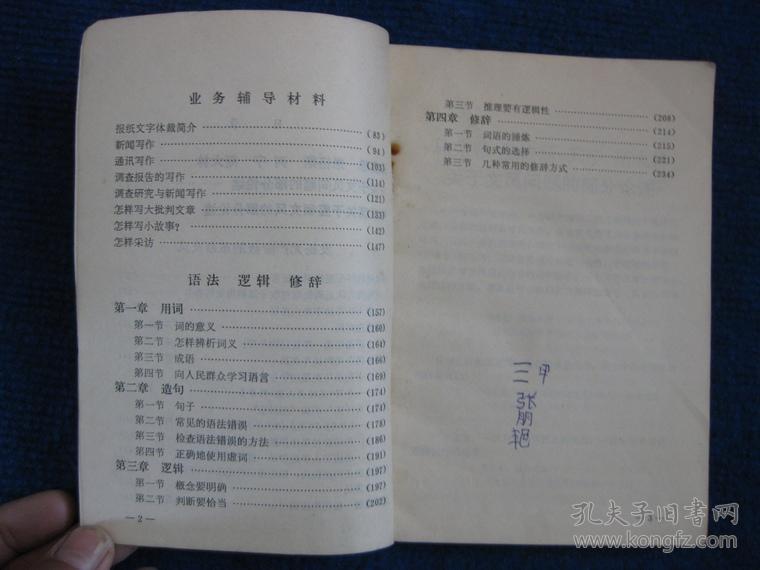 业务辅导材料
报纸文字体裁简介……(85)
新闻写作……(94)
通讯写作……(103)
调查报告的写作……(114)
调查研究与新闻写作……(121)
怎样写大批判文章……(133)
怎样写小故事?……(142)
怎样采访……(147)
语法 逻辑 修辞
第一章 用词……(157)
第一节 词的意义……(160)
第二节 怎样辨析词义……(164)
第三节 成语……(166)
第四节 向人民群众学习语言……(169)
第二章 造句……(174)
第一节 句子……(174)
第二节 常见的语法错误……(178)
第三节 检查语法错误的方法……(186)
第四节 正确地使用虚词……(191)
第三章 逻辑……(197)
第一节 概念要明确……(197)
第二节 判断要恰当……(202)
— 2 —
第三节 推理要有逻辑性……(208)
第四章 修辞……(214)
第一节 词语的锤炼……(215)
第二节 句式的选择……(221)
第三节 几种常用的修辞方式……(234)
张朋艳
孔夫子旧书网
www.kongfz.com